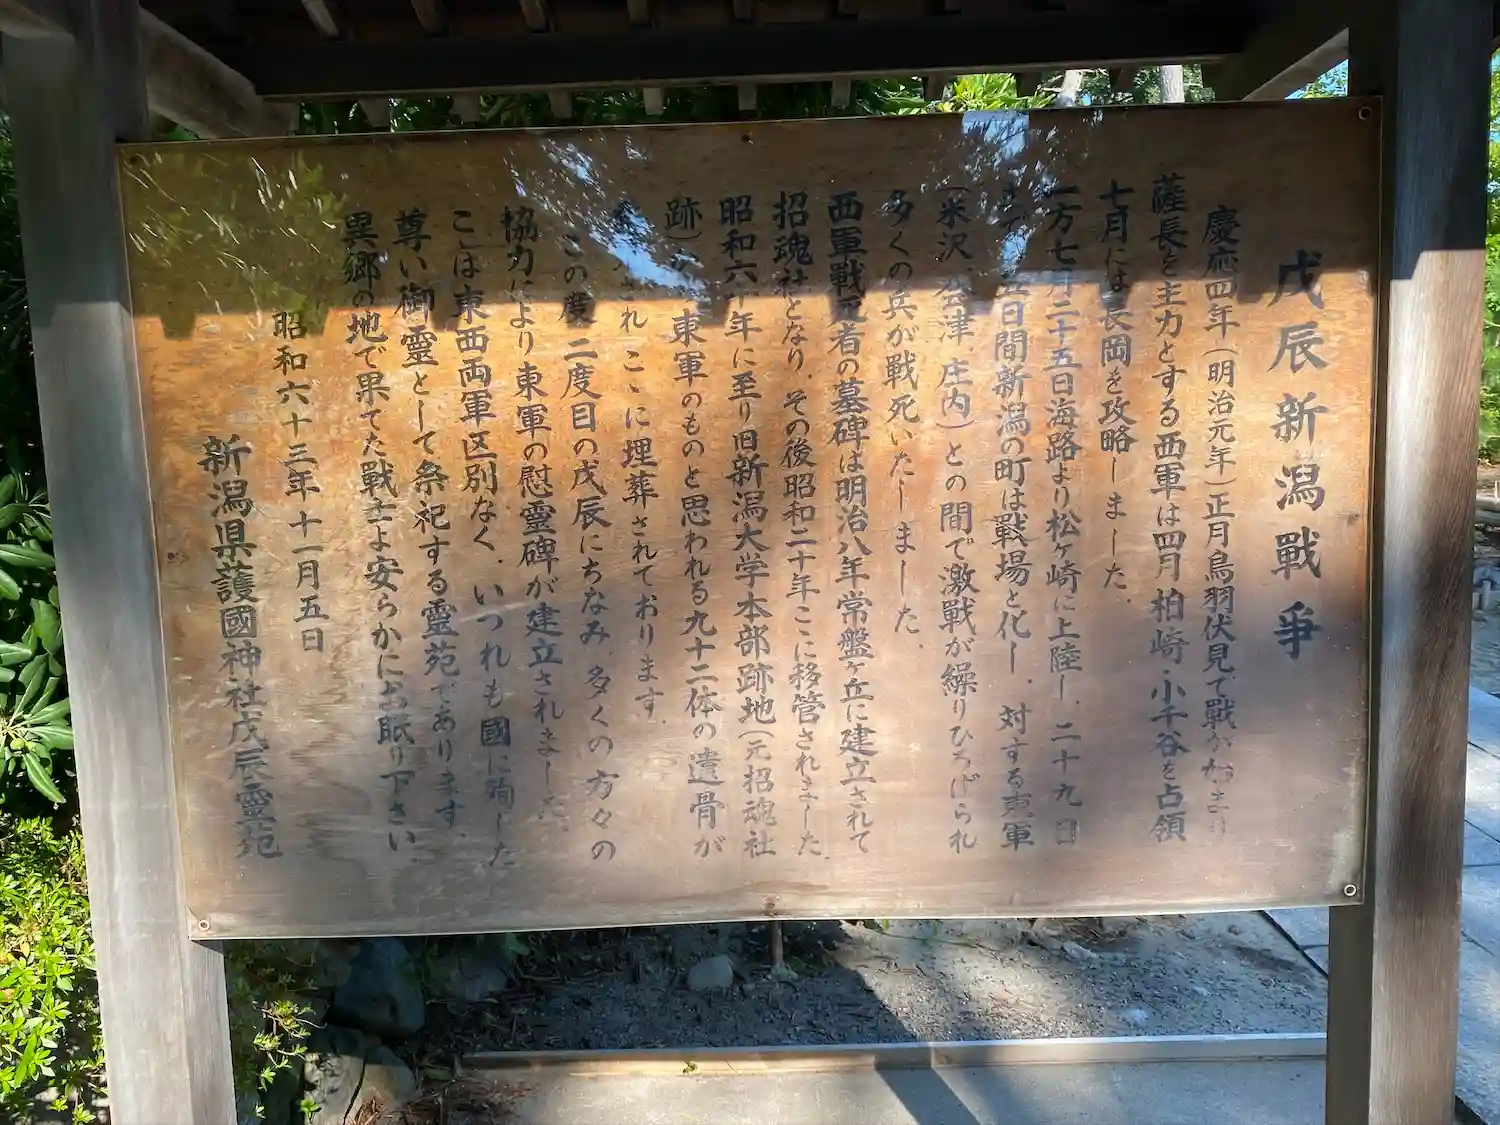 戊辰新潟戦争
慶応四年(明治元年)正月鳥羽伏見で戦が始まり
薩長を主力とする西軍は四月柏崎・小千谷を占領
七月には長岡を攻略しました.
一方七月二十五日海路より松ヶ崎に上陸し、二十九日
まで 五日間新潟の町は戦場と化し、対する東軍
(米沢.会津.庄内)との間で激戦が繰りひろげられ
多くの兵が戦死いたしました.
西軍戦死者の墓碑は明治八年常盤ヶ丘に建立されて
招魂社となり.その後昭和二十年こゝに移管されました.
昭和六十年に至り旧新潟大学本部跡地(元招魂社
跡) 東軍のものと思われる九十二体の遺骨が
され こゝに埋葬されております.
この度 二度目の戊辰にちなみ.多くの方々の
協力により東軍の慰霊碑が建立されました.
こゝは東西両軍区別なく、いつれも國に殉じた
尊い御霊として祭祀する霊苑であります.
異郷の地で果てた戦士よ安らかにお眠り下さい
昭和六十三年十一月五日
新潟県護國神社戊辰霊苑